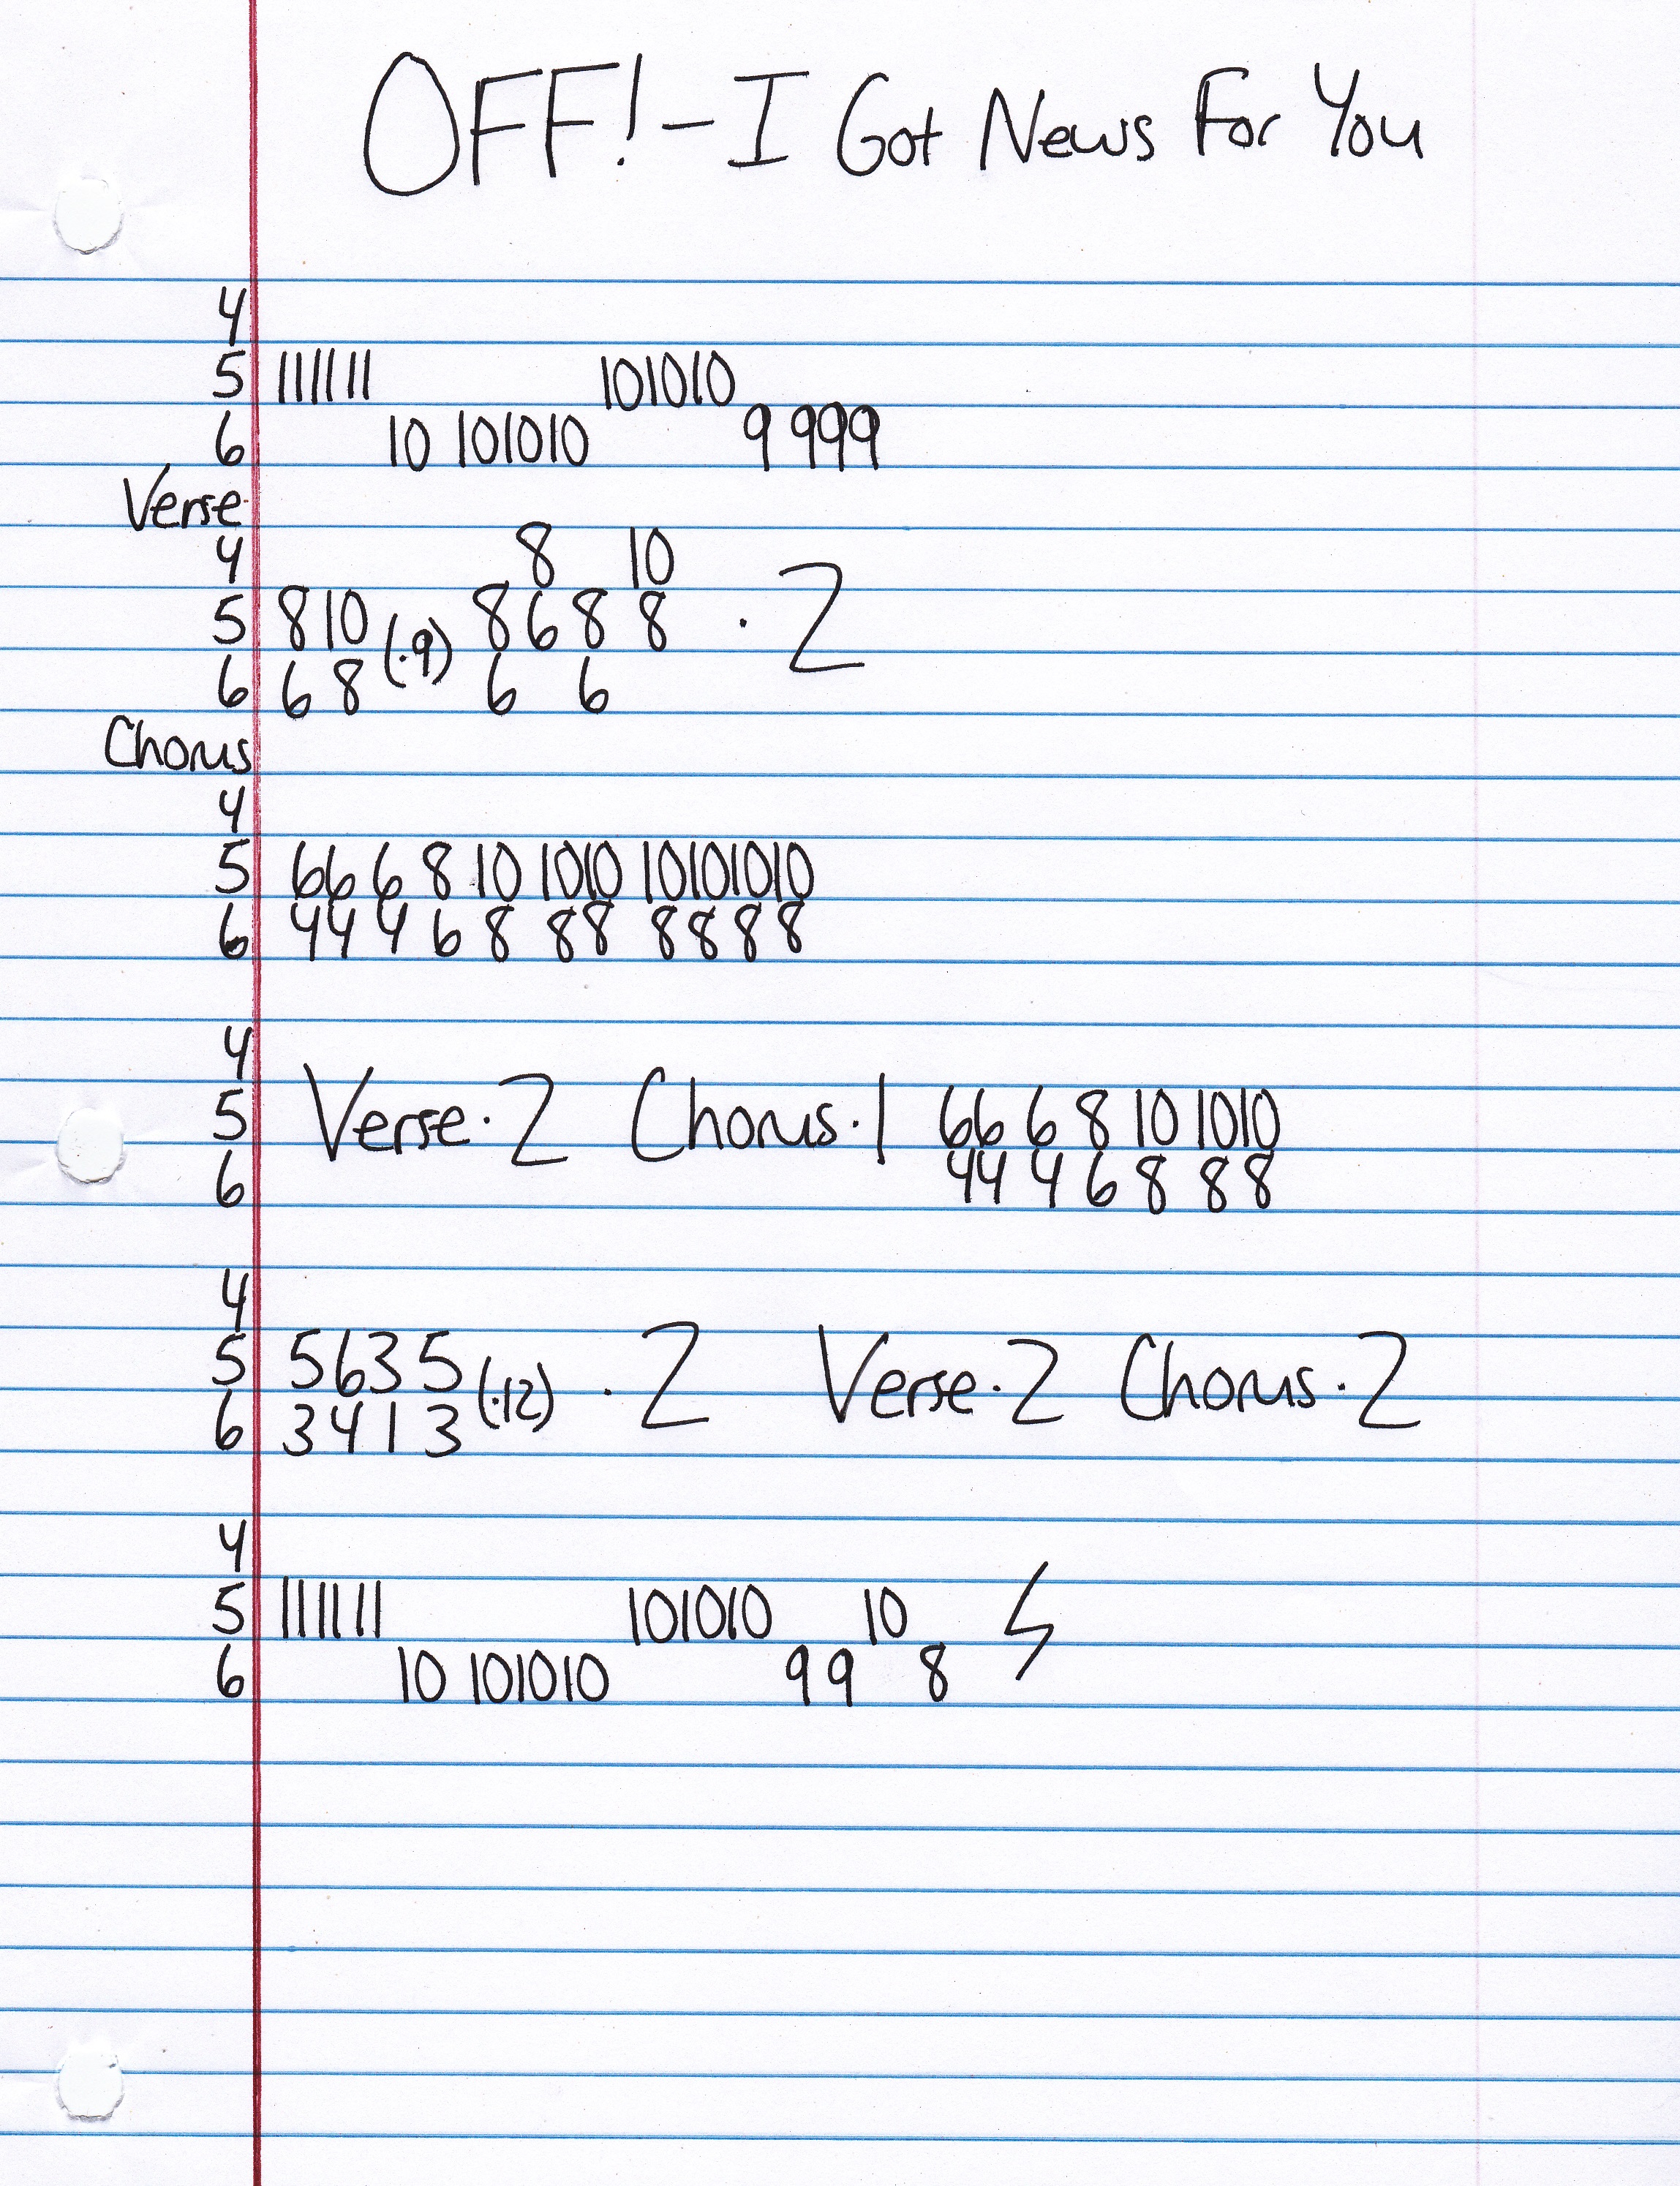 OFF! - I Got News For You
4
5 11 11 11 10 10 10
6 10 10 10 10 9 9 9 9
Verse
4 8 10
5 8 10 (·9) 8 6 8 8 · 2
6 6 8 6 6
Chorus
4
5 6 6 6 8 10 10 10 10 10 10 10
6 4 4 4 6 8 8 8 8 8 8 8
4
5 Verse · 2 Chorus · 1 6 6 6 8 10 10 10
6 4 4 4 6 8 8 8
4
5 5 6 3 5 (·12) · 2 Verse · 2 Chorus · 2
6 3 4 1 3
4
5 11 11 11 10 10 10 10
6 10 10 10 10 9 9 8